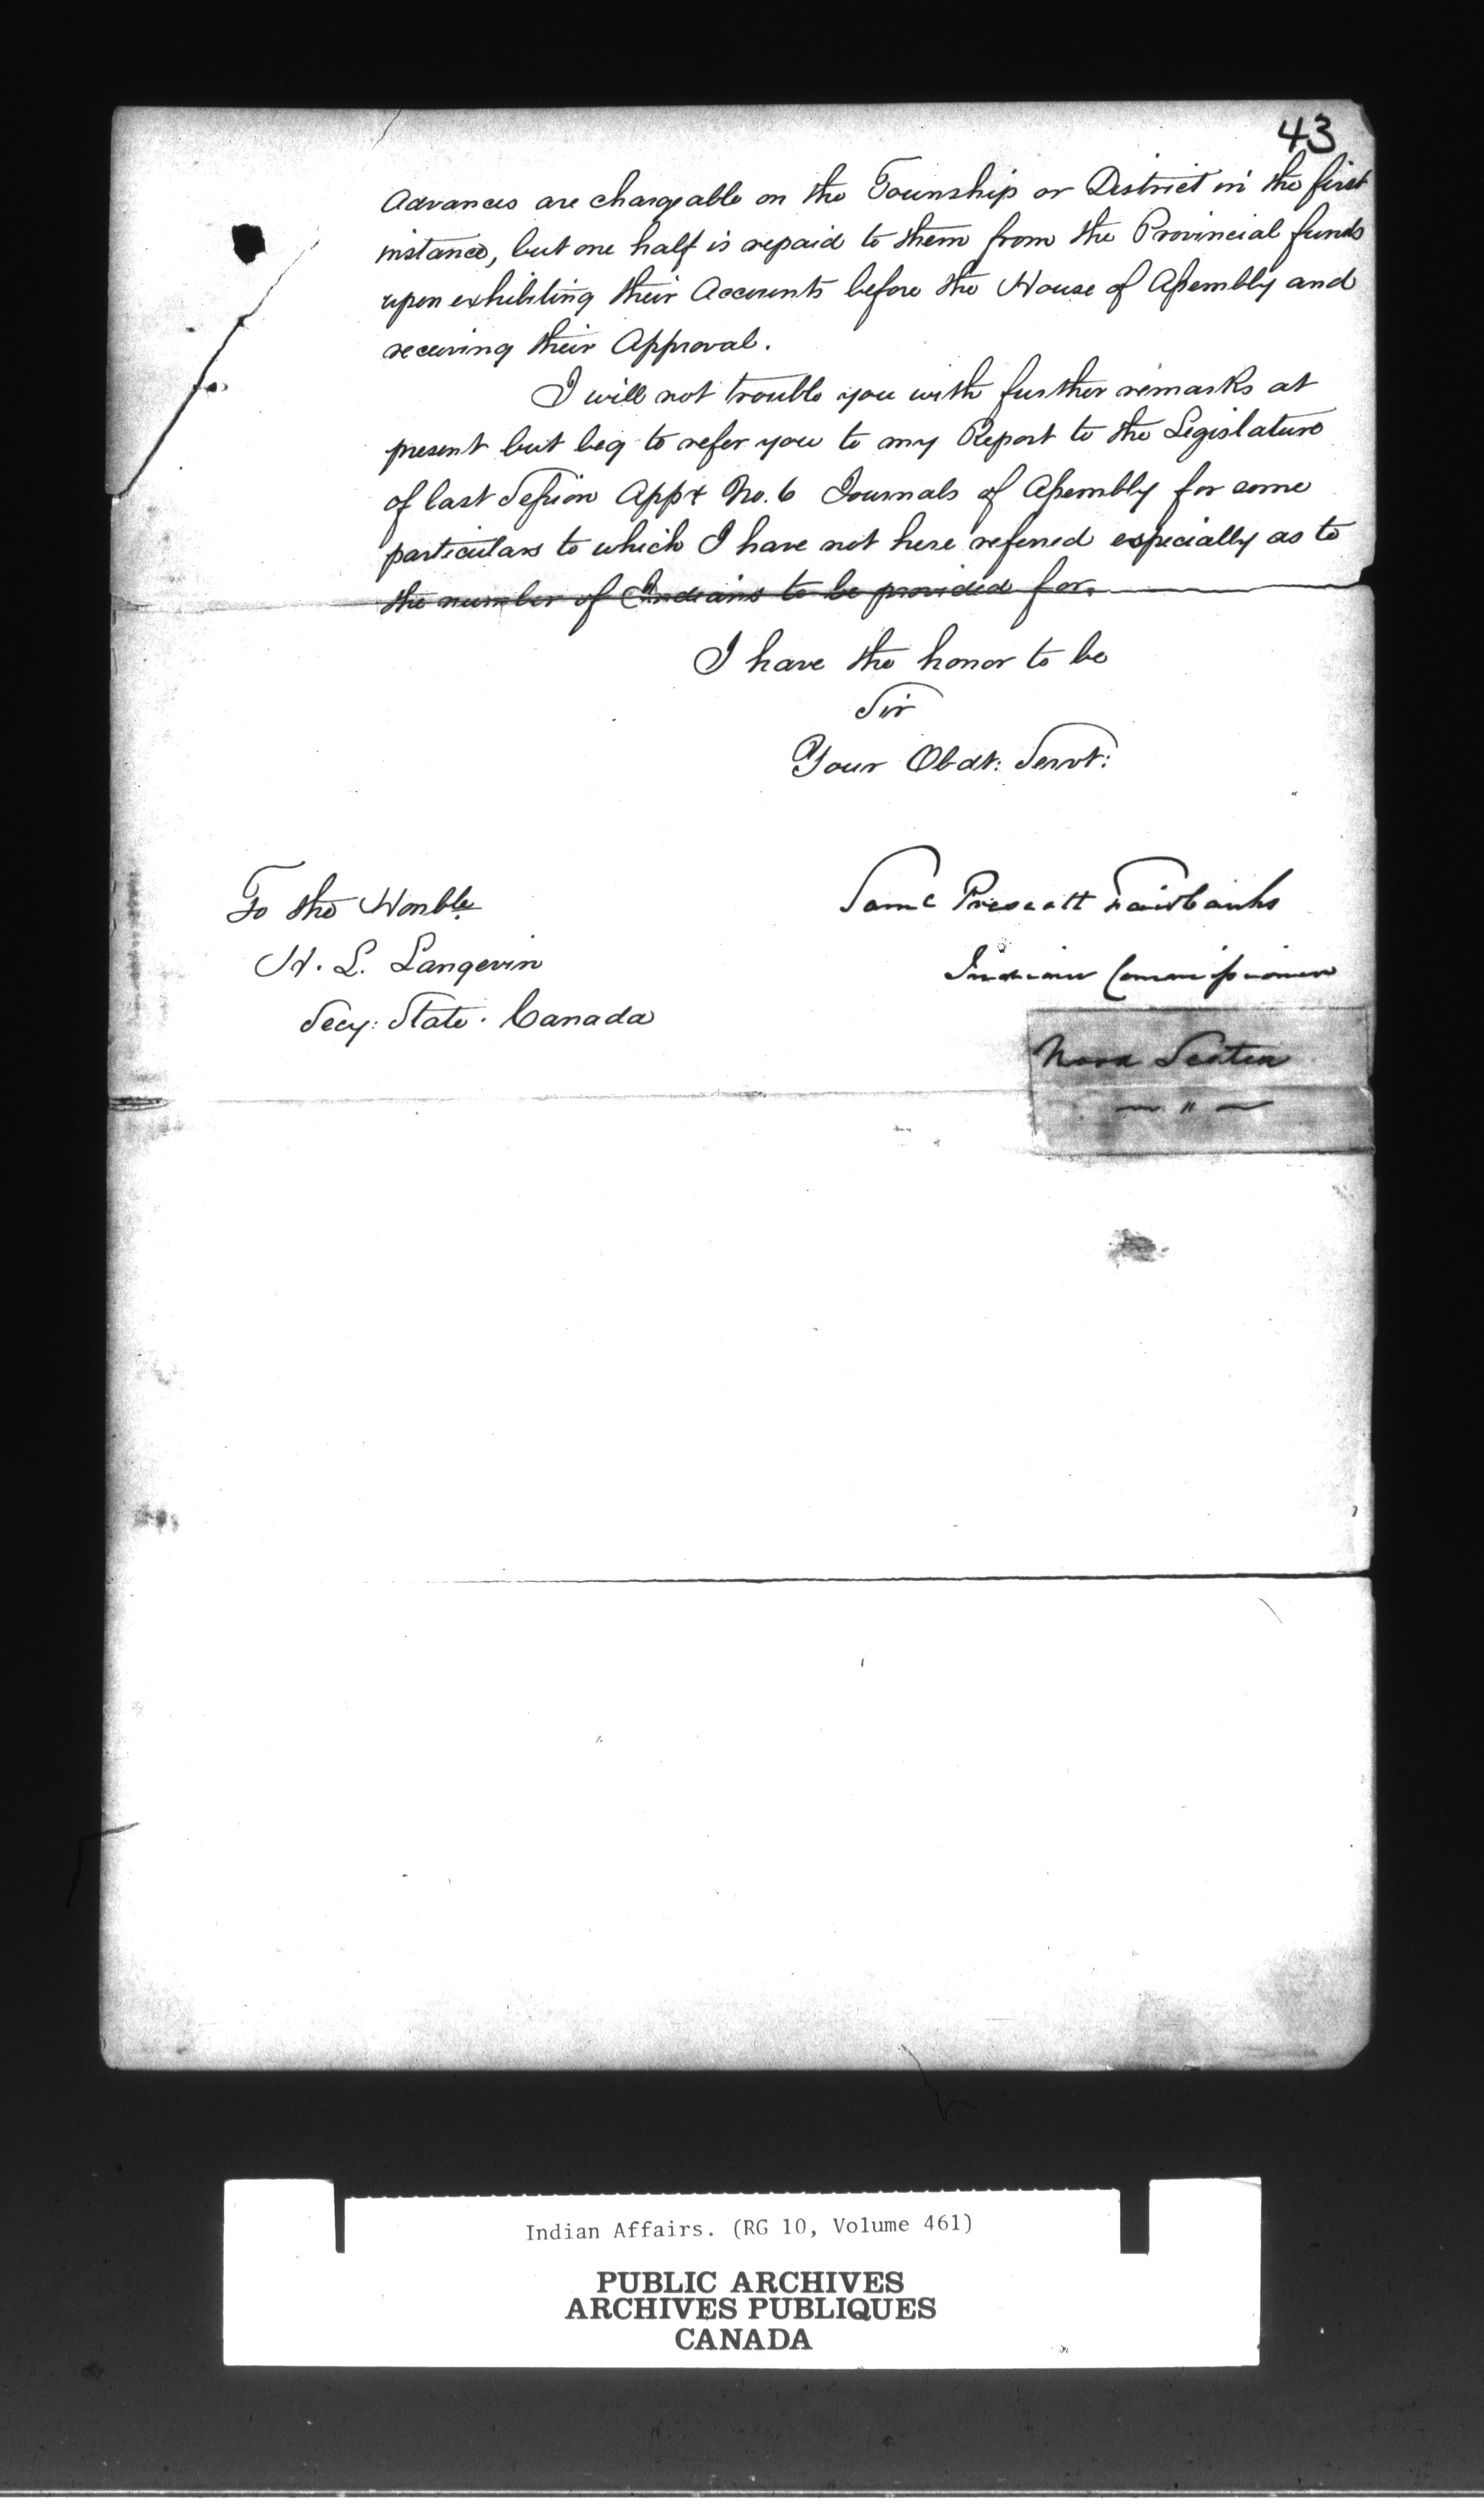 43
Advances are chargeable on the Township or District in the first
instance, but one half is repaid to them from the Provincial funds
upon exhibiting their Accounts before the House of Assembly and
receiving their Approval.
I will not trouble you with further remarks at
present but beg to refer you to my Report to the Legislature
of last Session Appx No. 6 Journals of Assembly for some
particulars to which I have not here referred especially as to
the number of Indians to be provided for.
I have the honor to be
Sir
Your Obdt: Servt:
Saml Prescott Fairbanks
Indian Commissioner
Nova Scotia
— " —
To the Honble
H. L. Langevin
Secy: State. Canada
Indian Affairs. (RG 10, Volume 461)
PUBLIC ARCHIVES
ARCHIVES PUBLIQUES
CANADA